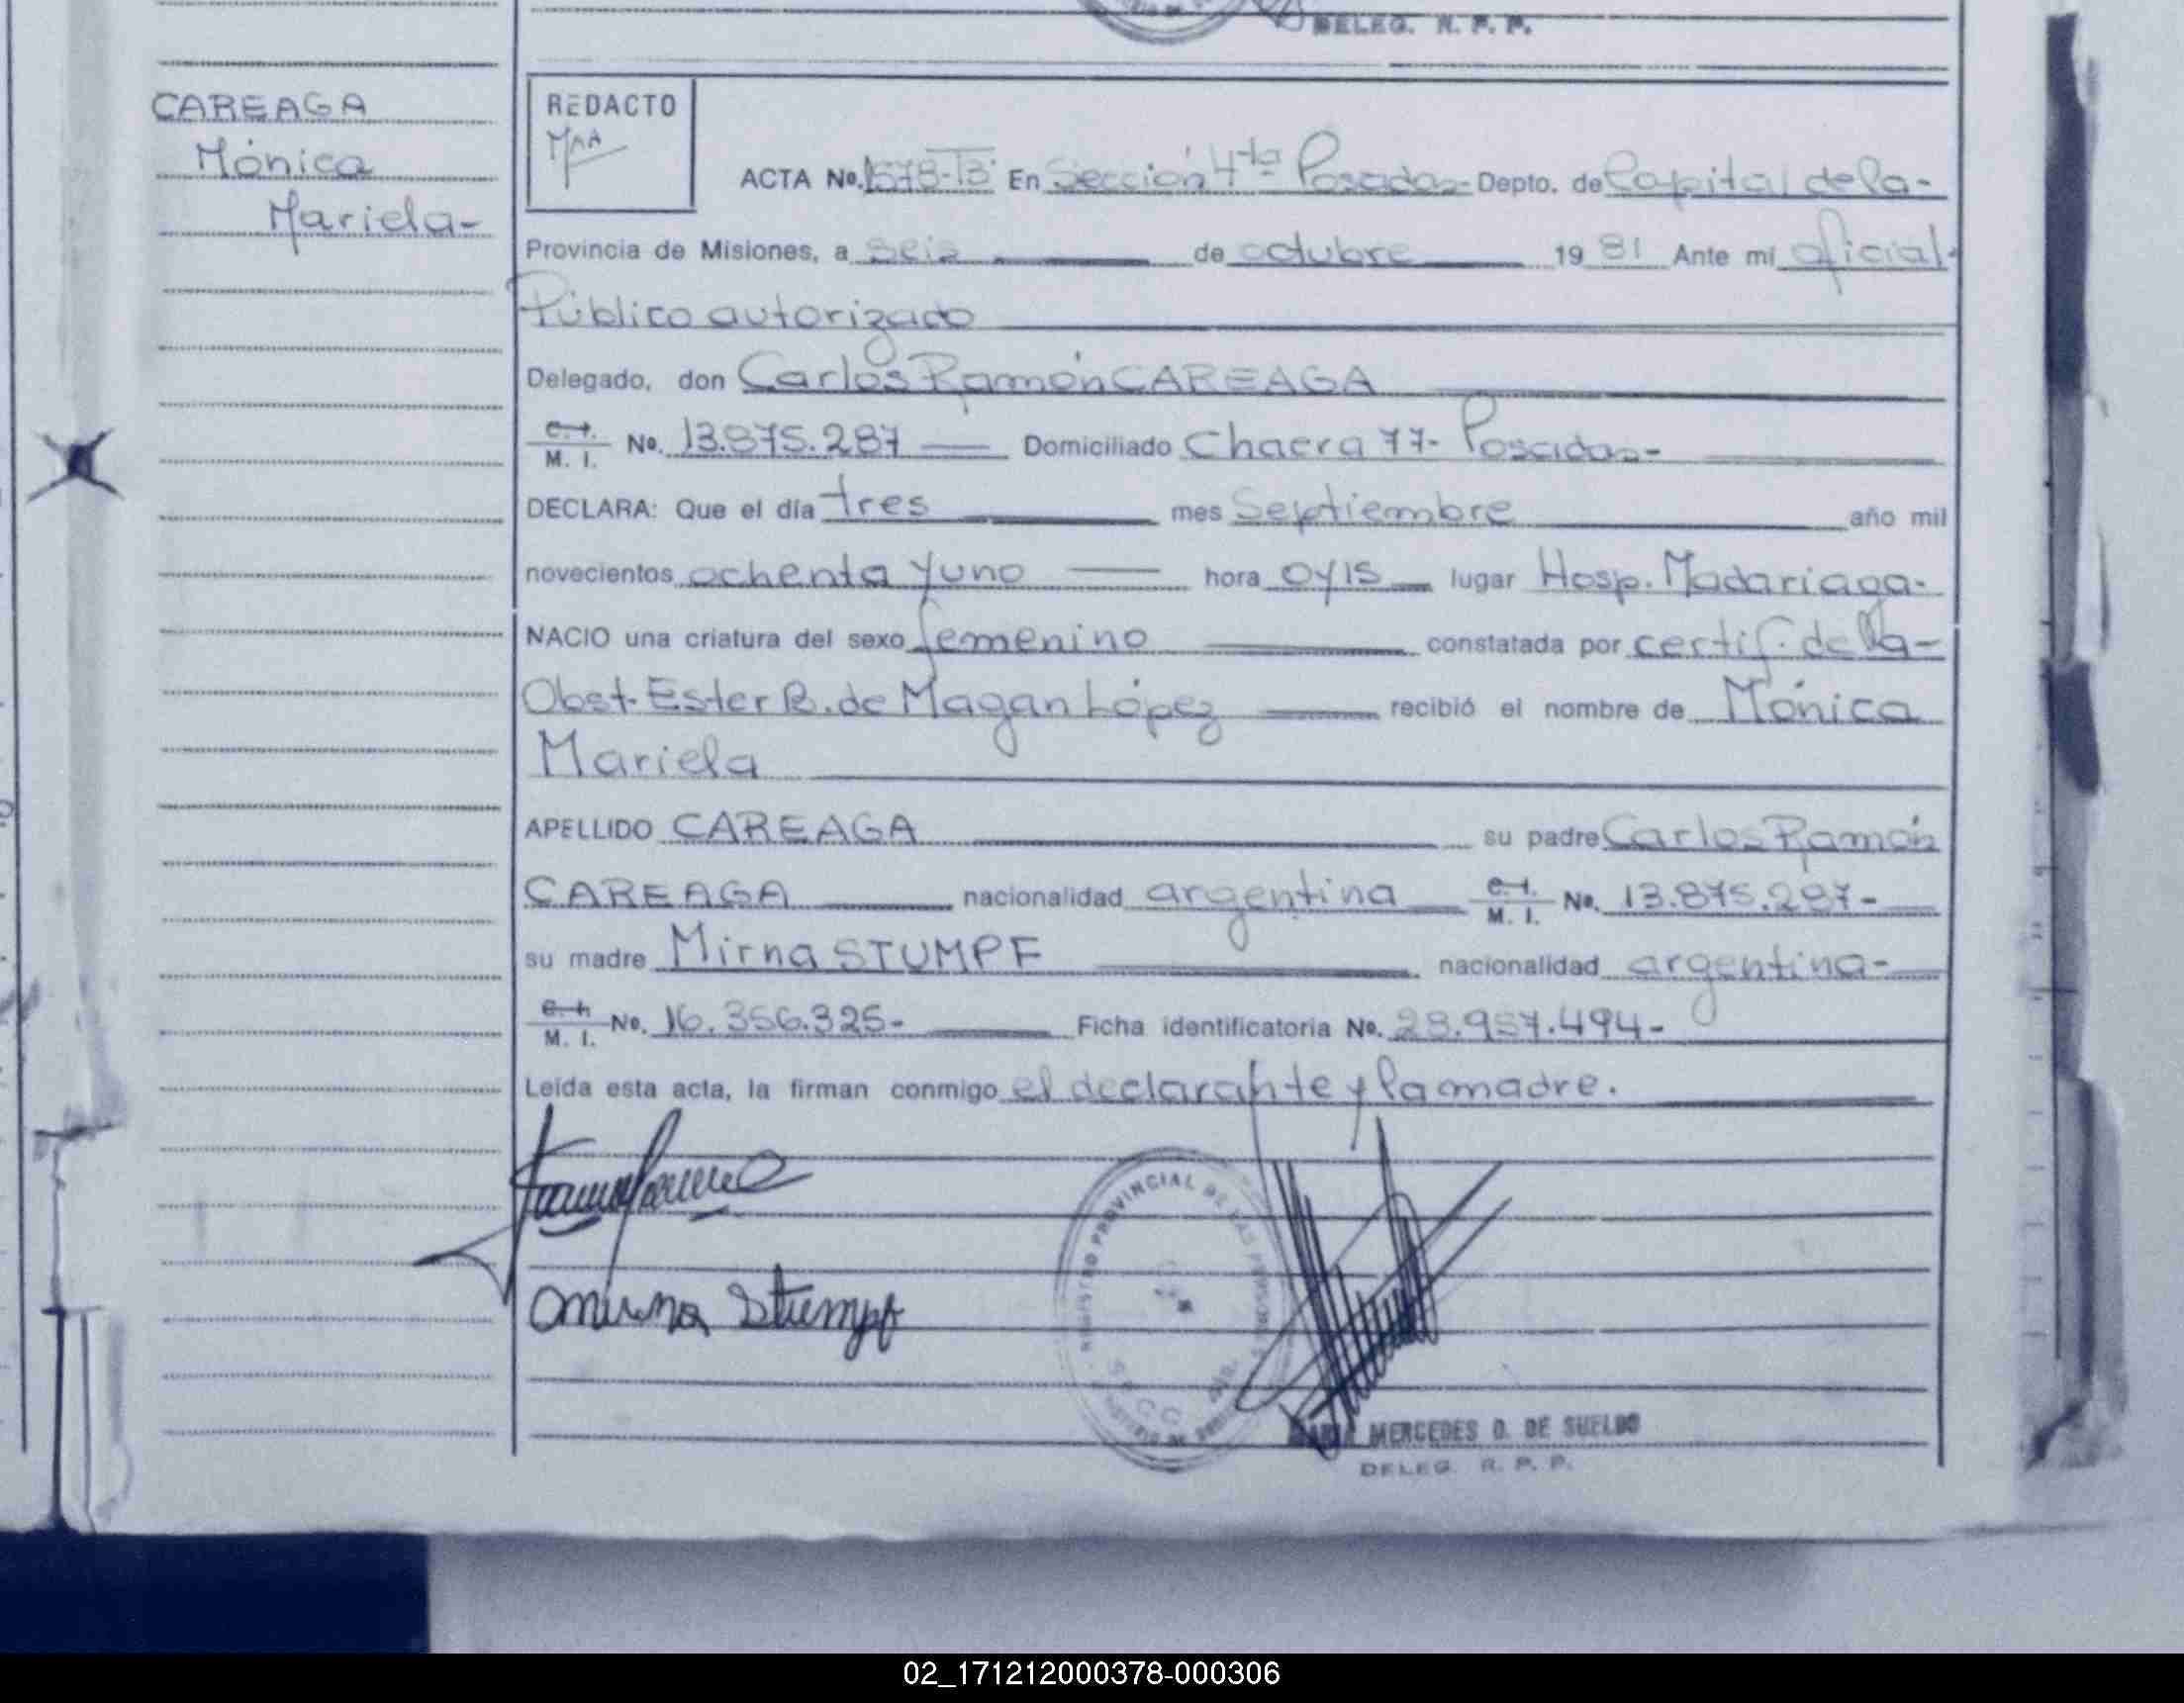 DELEG. R. P. P.
CAREAGA
Mónica
Mariela-
REDACTO
ACTA No. 1578-T3- En Sección 4ta Posadas- Depto. de Capital de la-
Provincia de Misiones, a seis de octubre 19 81 Ante mí oficial-
Público autorizado
Delegado, don Carlos Ramón CAREAGA
C. I. M. I. No. 13.875.287 Domiciliado Chacra 77- Posadas-
DECLARA: Que el día tres mes Septiembre año mil
novecientos ochenta y uno hora 0y15 lugar Hosp. Madariaga-
NACIO una criatura del sexo femenino constatada por certif. de la-
Obst. Ester B. de Magan López recibió el nombre de Mónica
Mariela
APELLIDO CAREAGA su padre Carlos Ramón
CAREAGA nacionalidad argentina C. I. M. I. No. 13.875.287-
su madre Mirna STUMPF nacionalidad argentina-
C. I. M. I. No. 16.356.325- Ficha identificatoria No. 28.957.494-
Leída esta acta, la firman conmigo el declarante y la madre.
REGISTRO PROVINCIAL DE LAS PERSONAS
Mirna Stumpf
MARIA MERCEDES D. DE SUELDO
DELEG. R. P. P.
02_171212000378-000306